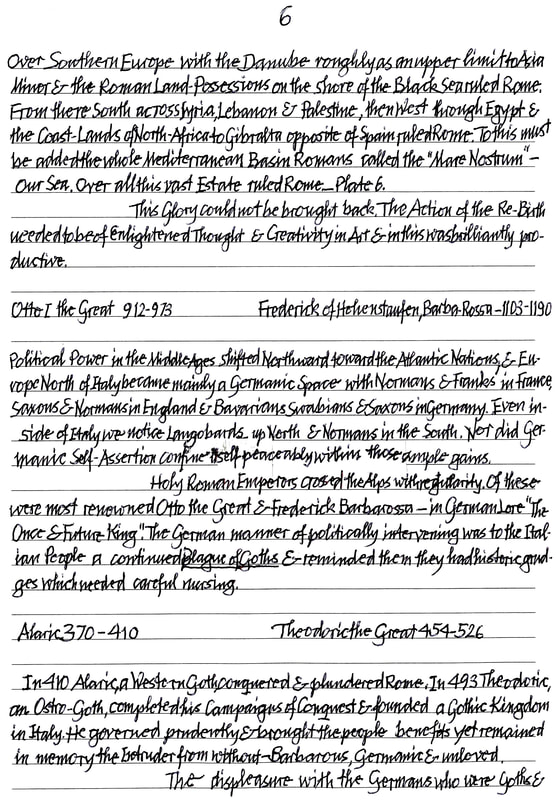 6
Over Southern Europe with the Danube roughly as an upper limit to Asia
Minor & the Roman Land-Possessions on the shore of the Black Sea ruled Rome.
From there South across Syria, Lebanon & Palestine, then West through Egypt &
the Coast-Lands of North-Africa to Gibralta opposite of Spain ruled Rome. To this must
be added the whole Mediterranean Basin Romans called the "Mare Nostrum" –
Our Sea. Over all this vast Estate ruled Rome – Plate 6.
This Glory could not be brought back. The Action of the Re-Birth
needed to be of Enlightened Thought & Creativity in Art & in this was brilliantly pro-
ductive.
Otto I the Great 912-973 Frederick of Hohenstaufen, Barba-Rossa – 1103-1190
Political Power in the Middle Ages shifted Northward toward the Atlantic Nations, & Eu-
rope North of Italy became mainly a Germanic Space with Normans & Franks in France,
Saxons & Normans in England & Bavarians Swabians & Saxons in Germany. Even in-
side of Italy we notice Langobards up North & Normans in the South. Nor did Ger-
manic Self-Assertion confine itself peaceably within those ample gains.
Holy Roman Emperors crossed the Alps with regularity. Of these
were most renowned Otto the Great & Frederick Barbarossa – in German Lore "The
Once & Future King". The German manner of politically intervening was to the Ital-
ian People a continued plague of Goths & reminded them they had historic grud-
ges which needed careful nursing.
Alaric 370-410 Theodoric the Great 454-526
In 410 Alaric, a Western Goth conquered & plundered Rome. In 493 Theodoric,
an Ostro-Goth, completed his Campaigns of Conquest & founded a Gothic Kingdom
in Italy. He governed prudently & brought the people benefits yet remained
in memory the Intruder from without – Barbarous, Germanic & unloved.
The displeasure with the Germans who were Goths &